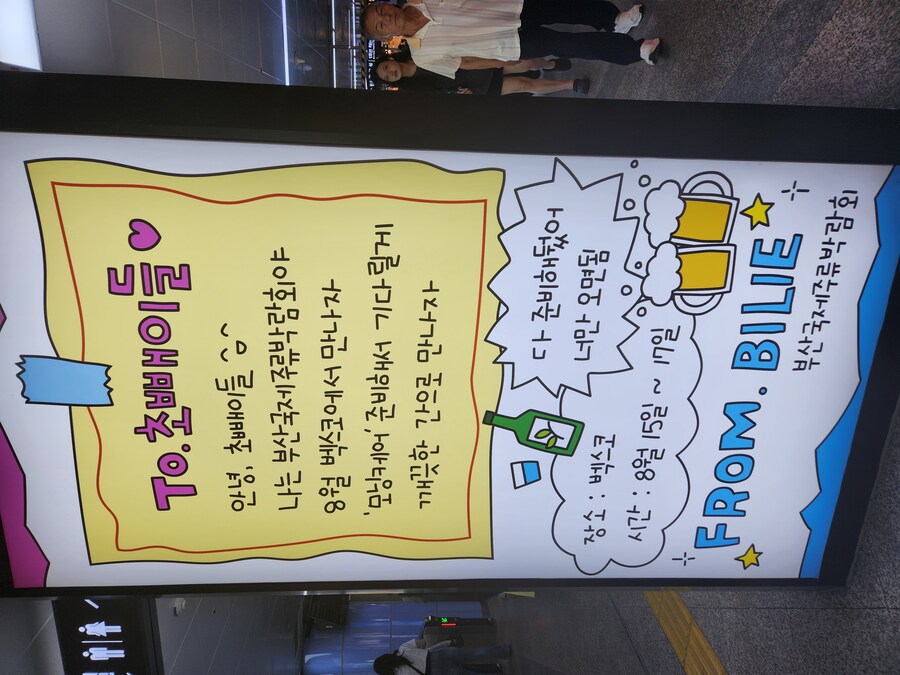 To. 초빼이들
안녕, 초빼이들
나는 부산국제주류박람회야
8월 벡스코에서 만나자
'모닝케어' 준비해서 기다릴게
깨끗한 간으로 만나자
다 준비해뒀어
너만 오면됨
장소 : 벡스코
시간 : 8월 15일 ~ 17일
FROM. BILIE
부산국제주류박람회